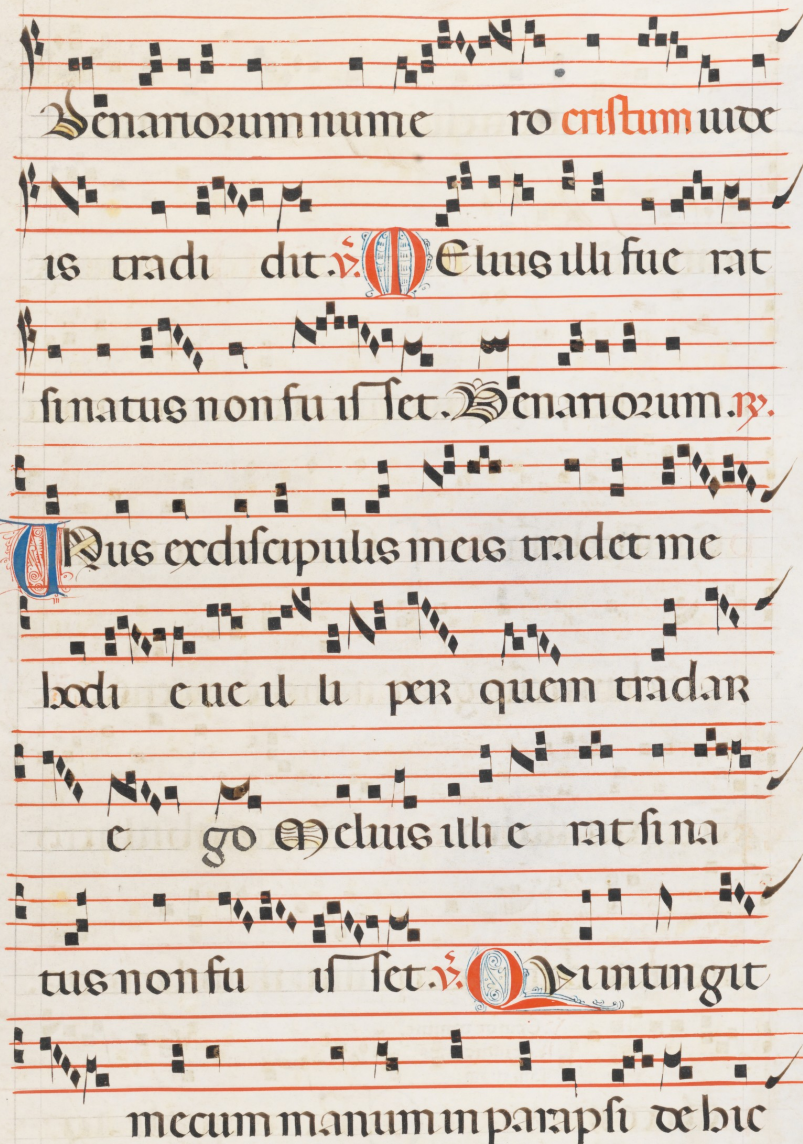 Denariorum nume ro cristum iude
is tradi dit. ℣. MElius illi fue rat
si natus non fu is set. Denariorum. ℟.
UNus ex discipulis meis tradet me
hodi e ue il li per quem tradar
e go Melius illi e rat si na
tus non fu is set. ℣. QUi intingit
mecum manum in parapsi de hic